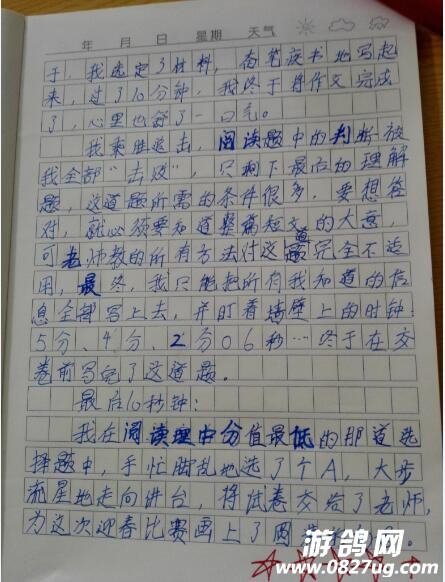 年 月 日 星期 天气
于，我选定了材料，奋笔疾书地写起
来，过了10分钟，我终于将作文完成
了，心里也舒了一口气。
我乘胜追击，阅读题中的判断被
我全部“击毙”，只剩下最后的理解
题，这道题所需的条件很多，要想答
对，就必须要知道整篇短文的大意，
可老师教的所有方法对这道题完全不适
用，最终，我只能把所有我知道的信
息全部写上去，并盯着墙壁上的时钟：
5分、4分、2分06秒…终于在交
卷前写完了这道题。
最后10秒钟：
我在阅读题中分值最低的那道选
择题中，手忙脚乱地选了个A，大步
流星地走向讲台，将试卷交给了老师，
为这次迎春比赛画上了圆
游鸽网
www.0827ug.com